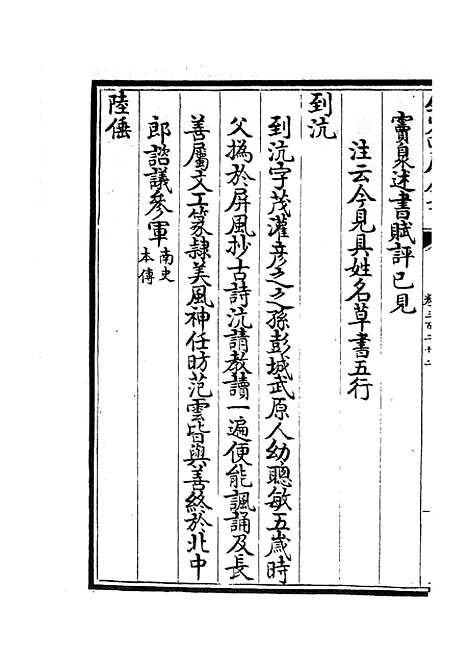 竇臮述書賦評已見
注云今見具姓名草書五行
到沆
到沆字茂瀣彦之之孫彭城武原人幼聰敏五歲時
父撝於屏風抄古詩沆請教讀一遍便能諷誦及長
善屬文工篆隸美風神任昉范雲皆與善終於北中
郎諮議參軍南史本傳
陸倕